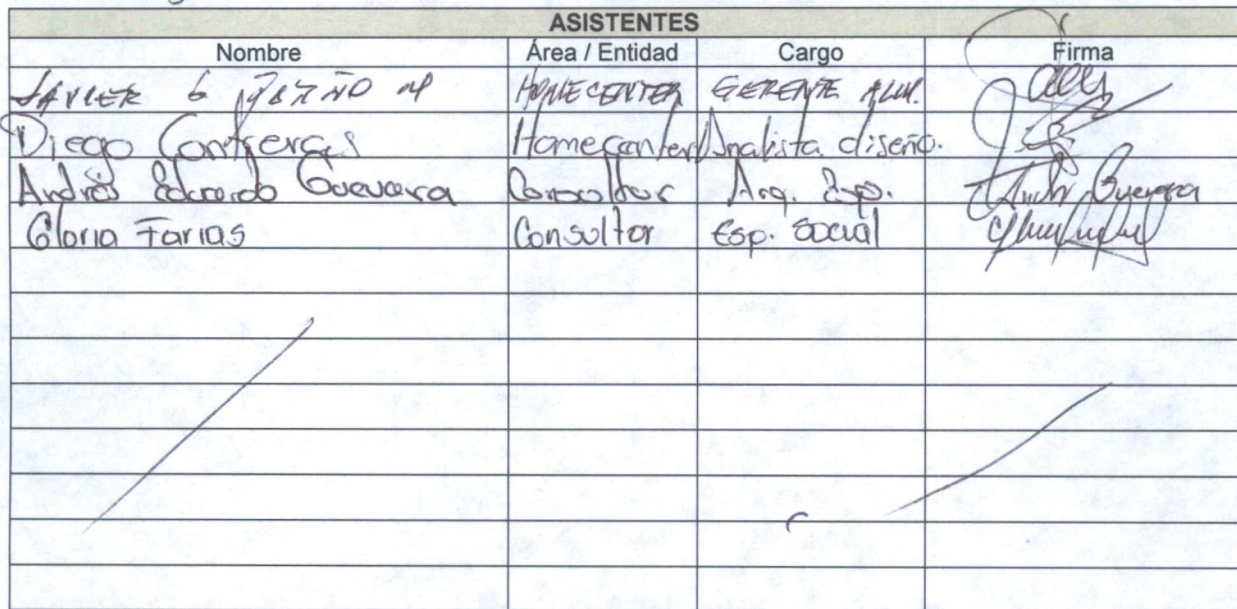 ASISTENTES
Nombre Área / Entidad Cargo Firma
JAVIER G HOMECENTER GERENTE
Diego Contreras Homecenter Analista diseño.
Andrés Eduardo Guevara Consultor Arq. Esp. Guevara
Gloria Farias Consultor Esp. Social